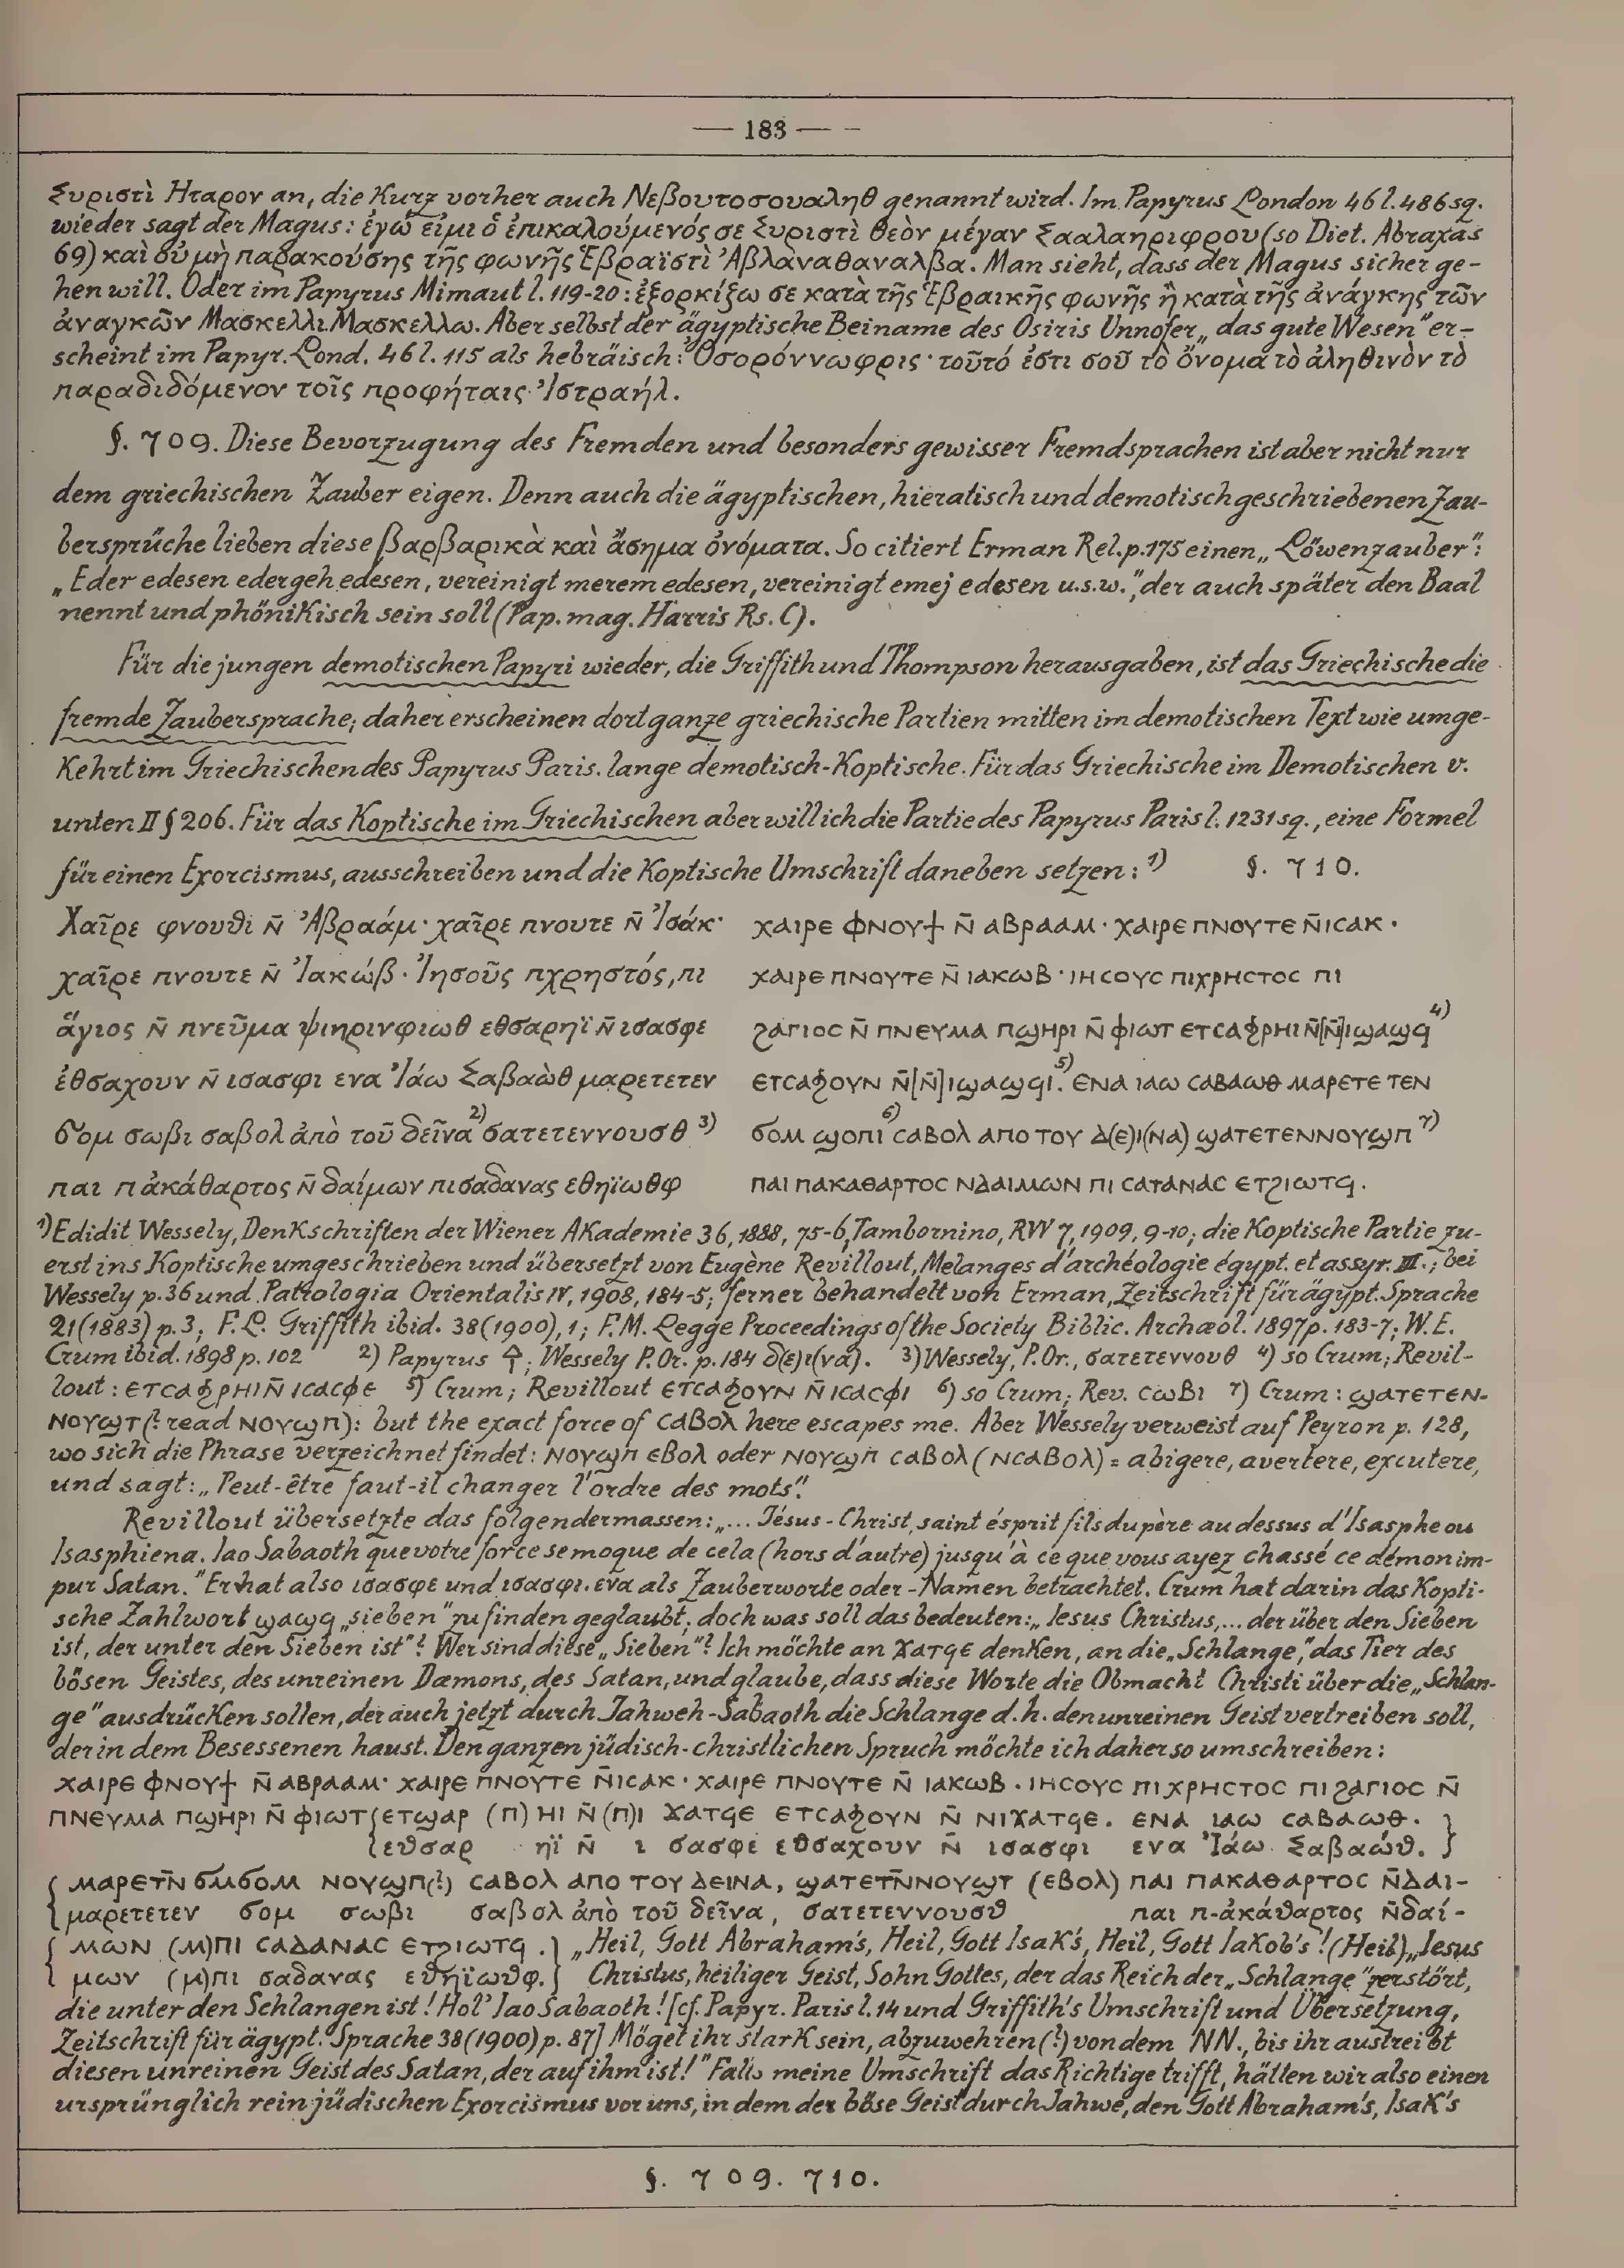 — 183 —
Συριστὶ Ηταρον an, die kurz vorher auch Νεβουτοσουαληθ genannt wird. Im Papyrus London 46 l. 486 sq.
wieder sagt der Magus: ἐγώ εἰμι ὁ ἐπικαλούμενός σε Συριστὶ θεὸν μέγαν Σααλαηριφρου (so Diet. Abraxas
69) καὶ σὺ μὴ παρακούσης τῆς φωνῆς Ἑβραϊστὶ Ἀβλαναθαναλβα. Man sieht, dass der Magus sicher ge-
hen will. Oder im Papyrus Mimaut l. 119-20: ἐξορκίζω σε κατὰ τῆς Ἑβραικῆς φωνῆς ἢ κατὰ τῆς ἀνάγκης τῶν
ἀναγκῶν Μασκελλι Μασκελλω. Aber selbst der ägyptische Beiname des Osiris Unnofer „das gute Wesen" er-
scheint im Papyr. Lond. 46 l. 115 als hebräisch: Ὀσορόννωφρις· τοῦτό ἐστι σοῦ τὸ ὄνομα τὸ ἀληθινὸν τὸ
παραδιδόμενον τοῖς προφήταις Ἰστραήλ.
§. 709. Diese Bevorzugung des Fremden und besonders gewisser Fremdsprachen ist aber nicht nur
dem griechischen Zauber eigen. Denn auch die ägyptischen, hieratisch und demotisch geschriebenen Zau-
bersprüche lieben diese βαρβαρικὰ καὶ ἄσημα ὀνόματα. So citiert Erman Rel. p. 175 einen „Löwenzauber":
„Eder edesen edergeh edesen, vereinigt merem edesen, vereinigt emej edesen u.s.w.", der auch später den Baal
nennt und phönikisch sein soll (Pap. mag. Harris Rs. C).
Für die jungen demotischen Papyri wieder, die Griffith und Thompson herausgaben, ist das Griechische die
fremde Zaubersprache; daher erscheinen dort ganze griechische Partien mitten im demotischen Text wie umge-
kehrt im Griechischen des Papyrus Paris. lange demotisch-koptische. Für das Griechische im Demotischen v.
unten II § 206. Für das Koptische im Griechischen aber will ich die Partie des Papyrus Paris l. 1231 sq., eine Formel
für einen Exorcismus, ausschreiben und die koptische Umschrift daneben setzen: 1) §. 710.
Χαῖρε φνουθι ν̄ Ἀβραάμ· χαῖρε πνουτε ν̄ Ἰσάκ· ⲭⲁⲓⲣⲉ ⲫⲛⲟⲩϯ ⲛ̄ ⲁⲃⲣⲁⲁⲙ· ⲭⲁⲓⲣⲉ ⲡⲛⲟⲩⲧⲉ ⲛ̄ⲓⲥⲁⲕ·
χαῖρε πνουτε ν̄ Ἰακώβ· Ἰησοῦς πχρηστός, πι ⲭⲁⲓⲣⲉ ⲡⲛⲟⲩⲧⲉ ⲛ̄ ⲓⲁⲕⲱⲃ· ⲓⲏⲥⲟⲩⲥ ⲡⲓⲭⲣⲏⲥⲧⲟⲥ ⲡⲓ
ἅγιος ν̄ πνεῦμα ψιηρινφιωθ εθσαρηϊ ν̄ ισασφε ϩⲁⲅⲓⲟⲥ ⲛ̄ ⲡⲛⲉⲩⲙⲁ ⲡϣⲏⲣⲓ ⲛ̄ ⲫⲓⲱⲧ ⲉⲧⲥⲁϩⲣⲏⲓ ⲛ̄[ⲛ̄]ⲓϣⲁϣϥ 4)
ἐθσαχουν ν̄ ισασφι ενα Ἰάω Σαβαὼθ μαρετετεν ⲉⲧⲥⲁϧⲟⲩⲛ ⲛ̄[ⲛ̄]ⲓϣⲁϣϥⲓ. 5) ⲉⲛⲁ ⲓⲁⲱ ⲥⲁⲃⲁⲱⲑ ⲙⲁⲣⲉⲧⲉ ⲧⲉⲛ
ϭομ σωβι σαβολ ἀπὸ τοῦ δεῖνα 2) σατετεννουσθ 3) ϭⲟⲙ ϣⲟⲡⲓ 6) ⲥⲁⲃⲟⲗ ⲁⲡⲟ ⲧⲟⲩ ⲇ(ⲉ)ⲓ(ⲛⲁ) ϣⲁⲧⲉⲧⲉⲛⲛⲟⲩϣⲡ 7)
παι π ἀκάθαρτος ν̄ δαίμων πισαδανας εθηϊωθφ ⲡⲁⲓ ⲡⲁⲕⲁⲑⲁⲣⲧⲟⲥ ⲛⲇⲁⲓⲙⲱⲛ ⲡⲓ ⲥⲁⲧⲁⲛⲁⲥ ⲉⲧϩⲓⲱⲧϥ.
1) Edidit Wessely, Denkschriften der Wiener Akademie 36, 1888, 75-6, Tambornino, RVV 7, 1909, 9-10; die koptische Partie zu-
erst ins Koptische umgeschrieben und übersetzt von Eugène Revillout, Melanges d'archéologie égypt. et assyr. III.; bei
Wessely p. 36 und Patrologia Orientalis IV, 1908, 184-5; ferner behandelt von Erman, Zeitschrift für ägypt. Sprache
21 (1883) p. 3; F. L. Griffith ibid. 38 (1900), 1; F. M. Legge Proceedings of the Society Biblic. Archæol. 1897 p. 183-7; W. E.
Crum ibid. 1898 p. 102 2) Papyrus; Wessely P. Or. p. 184 δ(ε)ι(να). 3) Wessely, P. Or., σατετεννουθ 4) so Crum; Revil-
lout: ⲉⲧⲥⲁϩⲣⲏⲓ ⲛ̄ ⲓⲥⲁⲥⲫⲉ 5) Crum; Revillout ⲉⲧⲥⲁϧⲟⲩⲛ ⲛ̄ ⲓⲥⲁⲥⲫⲓ 6) so Crum; Rev. ⲥⲱⲃⲓ 7) Crum: ϣⲁⲧⲉⲧⲉⲛ-
ⲛⲟⲩϣⲧ (? read ⲛⲟⲩϣⲡ): but the exact force of ⲥⲁⲃⲟⲗ here escapes me. Aber Wessely verweist auf Peyron p. 128,
wo sich die Phrase verzeichnet findet: ⲛⲟⲩϣⲡ ⲉⲃⲟⲗ oder ⲛⲟⲩϣⲡ ⲥⲁⲃⲟⲗ (ⲛⲥⲁⲃⲟⲗ) = abigere, avertere, excutere,
und sagt: „Peut-être faut-il changer l'ordre des mots".
Revillout übersetzte das folgendermassen: „... Jésus-Christ, saint ésprit fils du père au dessus d'Isasphe ou
Isasphiena. Iao Sabaoth que votre force se moque de cela (hors d'autre) jusqu'à ce que vous ayez chassé ce démon im-
pur Satan." Er hat also ισασφε und ισασφι.ενα als Zauberworte oder -Namen betrachtet. Crum hat darin das kopti-
sche Zahlwort ϣⲁϣϥ „sieben" zu finden geglaubt; doch was soll das bedeuten: „Iesus Christus, ... der über den Sieben
ist, der unter den Sieben ist"? Wer sind diese „Sieben"? Ich möchte an ϫⲁⲧϥⲉ denken, an die „Schlange", das Tier des
bösen Geistes, des unreinen Dæmons, des Satan, und glaube, dass diese Worte die Obmacht Christi über die „Schlan-
ge" ausdrücken sollen, der auch jetzt durch Jahweh-Sabaoth die Schlange d.h. den unreinen Geist vertreiben soll,
der in dem Besessenen haust. Den ganzen jüdisch-christlichen Spruch möchte ich daher so umschreiben:
ⲭⲁⲓⲣⲉ ⲫⲛⲟⲩϯ ⲛ̄ ⲁⲃⲣⲁⲁⲙ· ⲭⲁⲓⲣⲉ ⲡⲛⲟⲩⲧⲉ ⲛ̄ⲓⲥⲁⲕ· ⲭⲁⲓⲣⲉ ⲡⲛⲟⲩⲧⲉ ⲛ̄ ⲓⲁⲕⲱⲃ· ⲓⲏⲥⲟⲩⲥ ⲡⲓ ⲭⲣⲏⲥⲧⲟⲥ ⲡⲓ ϩⲁⲅⲓⲟⲥ ⲛ̄
ⲡⲛⲉⲩⲙⲁ ⲡϣⲏⲣⲓ ⲛ̄ ⲫⲓⲱⲧ {ⲉⲧϣⲁⲣ (ⲡ) ⲏⲓ ⲛ̄ (ⲡ)ⲓ ϫⲁⲧϥⲉ ⲉⲧⲥⲁϧⲟⲩⲛ ⲛ̄ ⲛⲓϫⲁⲧϥⲉ. ⲉⲛⲁ ⲓⲁⲱ ⲥⲁⲃⲁⲱⲑ. }
{εθσαρ ηϊ ν̄ ι σασφε εθσαχουν ν̄ ισασφι ενα Ἰάω Σαβαώθ. }
{ ⲙⲁⲣⲉⲧⲛ̄ ϭⲙϭⲟⲙ ⲛⲟⲩϣⲡ(?) ⲥⲁⲃⲟⲗ ⲁⲡⲟ ⲧⲟⲩ ⲇⲉⲓⲛⲁ, ϣⲁⲧⲉⲧⲛ̄ⲛⲟⲩϣⲧ (ⲉⲃⲟⲗ) ⲡⲁⲓ ⲡⲁⲕⲁⲑⲁⲣⲧⲟⲥ ⲛ̄ⲇⲁⲓ-
{ μαρετετεν σομ σωβι σαβολ ἀπὸ τοῦ δεῖνα, σατετεννουσθ παι π-ἀκάθαρτος ν̄δαί-
{ ⲙⲱⲛ (ⲙ)ⲡⲓ ⲥⲁⲇⲁⲛⲁⲥ ⲉⲧϩⲓⲱⲧϥ. } „Heil, Gott Abraham's, Heil, Gott Isak's, Heil, Gott Jakob's! (Heil) „Iesus
{ μων (μ)πι σαδανας εθηϊωθφ. } Christus, heiliger Geist, Sohn Gottes, der das Reich der „Schlange" zerstört,
die unter den Schlangen ist! Hol' Iao Sabaoth! [cf. Papyr. Paris l. 14 und Griffith's Umschrift und Übersetzung,
Zeitschrift für ägypt. Sprache 38 (1900) p. 87] Möget ihr stark sein, abzuwehren (?) von dem NN., bis ihr austreibt
diesen unreinen Geist des Satan, der auf ihm ist!" Falls meine Umschrift das Richtige trifft, hätten wir also einen
ursprünglich rein jüdischen Exorcismus vor uns, in dem der böse Geist durch Jahwe, den Gott Abraham's, Isak's
§. 709. 710.